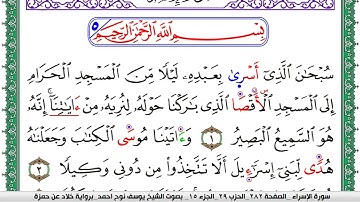 بِسْمِ اللَّهِ الرَّحْمَٰنِ الرَّحِيمِ
سُبْحَانَ الَّذِي أَسْرَىٰ بِعَبْدِهِ لَيْلًا مِنَ الْمَسْجِدِ الْحَرَامِ
إِلَى الْمَسْجِدِ الْأَقْصَا الَّذِي بَٰرَكْنَا حَوْلَهُ لِنُرِيَهُ مِنْ ءَايَٰتِنَا إِنَّهُ
هُوَ السَّمِيعُ الْبَصِيرُ ١ وَءَاتَيْنَا مُوسَى الْكِتَٰبَ وَجَعَلْنَٰهُ
هُدًى لِبَنِي إِسْرَٰٓءِيلَ أَلَّا تَتَّخِذُوا مِنْ دُونِي وَكِيلًا ٢
سورة الإسراء . الصفحة ٢٨٢ . الحزب ٢٩ . الجزء ١٥ . بصوت الشيخ يوسف نوح أحمد . برواية خلاد عن حمزة